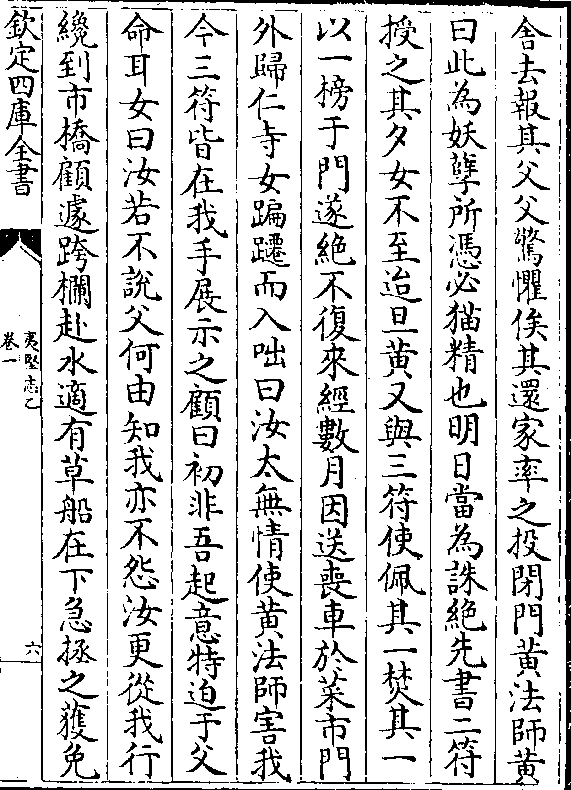 舎去報其父父驚懼俟其還家率之投閉門黄法師黄
曰此為妖孽所憑必猫精也明日當為誅絶先書二符
授之其夕女不至迨旦黄又與三符使佩其一焚其一
以一榜于門遂絶不復來經數月因送喪車於菜市門
外歸仁寺女蹁蹮而入咄曰汝太無情使黄法師害我
今三符皆在我手展示之顧曰初非吾起意特迫于父
命耳女曰汝若不說父何由知我亦不怨汝更從我行
纔到市橋顧遽跨欄赴水適有草船在下急拯之獲免
欽定四庫全書
夷堅志乙
卷一
六